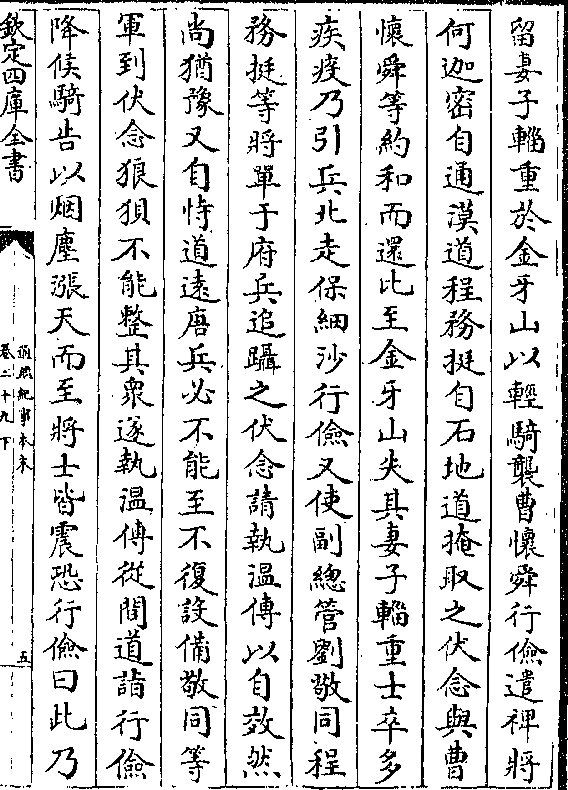 留妻子輜重於金牙山以輕騎襲曹懷舜行儉遣裨將
何迦密自通漠道程務挺自石地道掩取之伏念與曹
懷舜等約和而還比至金牙山失其妻子輜重士卒多
疾疫乃引兵北走保細沙行儉又使副總管劉敬同程
務挺等將單于府兵追躡之伏念請執温傅以自效然
尚猶豫又自恃道遠唐兵必不能至不復設備敬同等
軍到伏念狼狽不能整其衆遂執温傅從間道詣行儉
降候騎告以烟塵漲天而至將士皆震恐行儉曰此乃
欽定四庫全書
通鑑紀事本末
卷二十九下
五